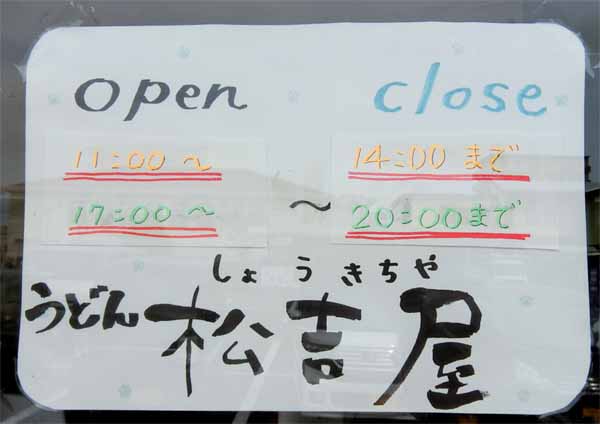 open close
11:00〜 14:00まで
17:00〜 〜 20:00まで
しょうきちや
うどん 松吉屋